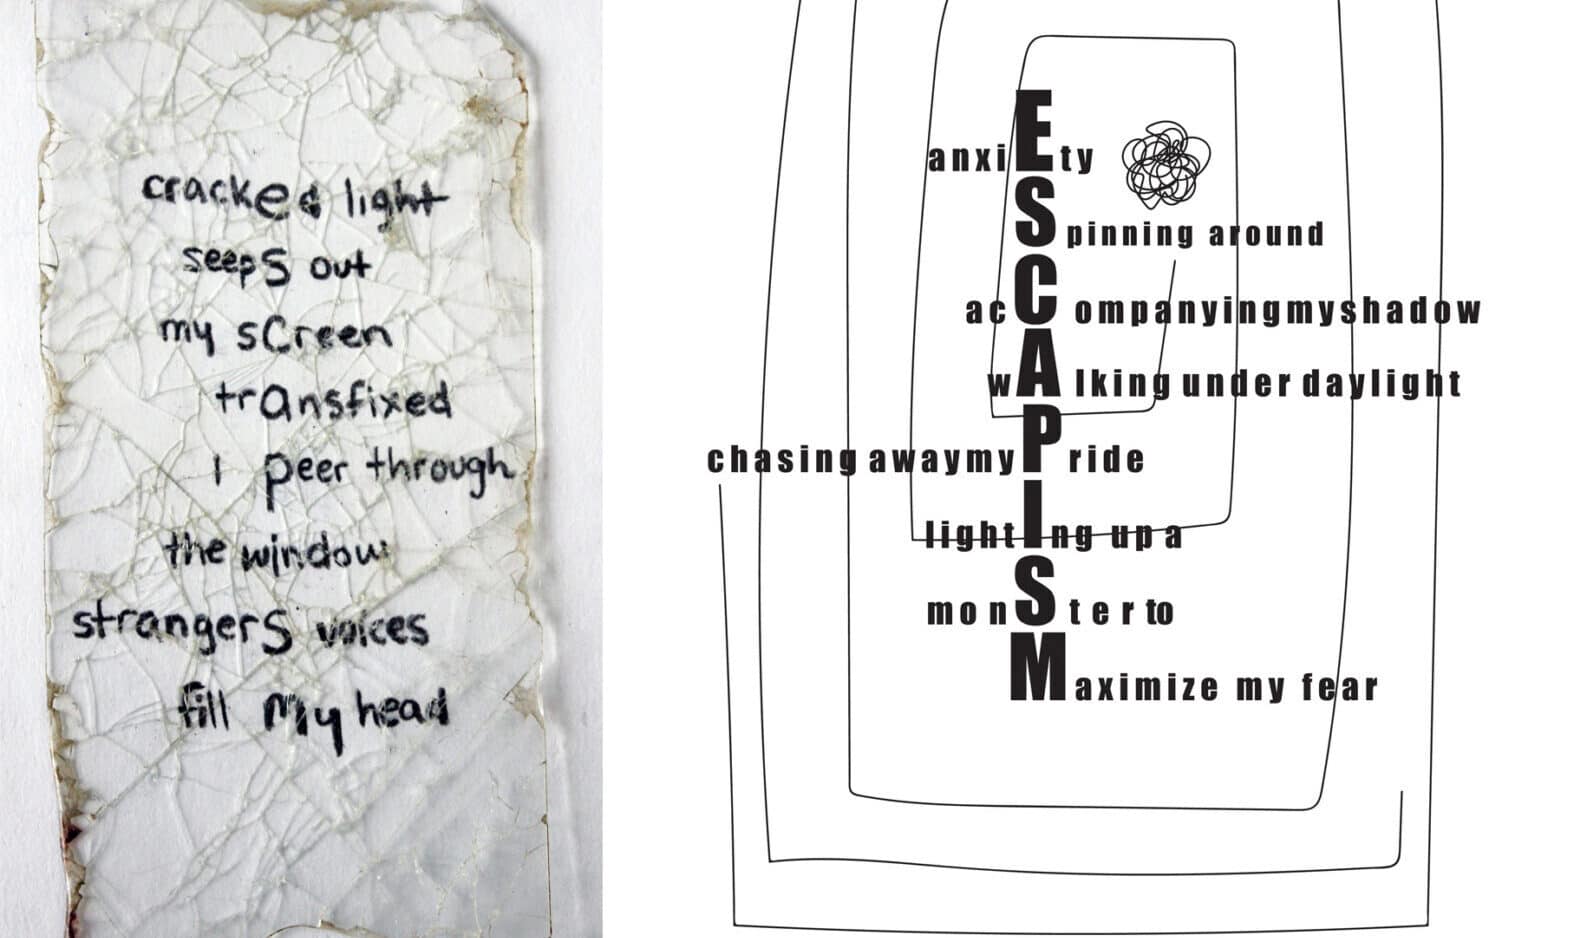 crackEd light
seepS out
my sCreen
trAnsfixed
I Peer through
the wIndow
strangerS voices
fill My head
anxiEty
Spinning around
acCompanyingmyshadow
wAlking under daylight
chasing awaymyPride
lightIng up a
monSter to
Maximize my fear